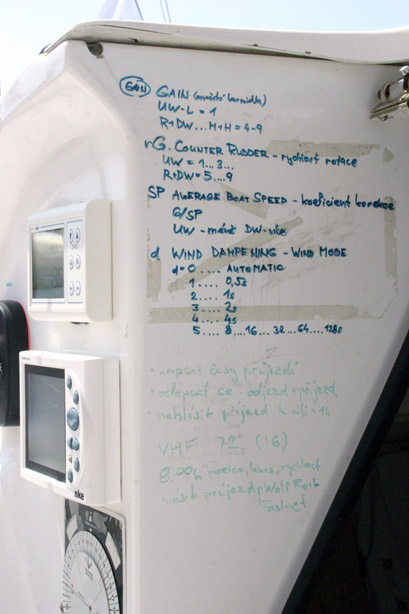 GAIN GAIN
UW-L = 1
R+DW...M+H = 4-9
rG. COUNTER RUDDER - rychlost rotace
UW = 1...3...
R+DW = 5...9
SP AWERAGE BOAT SPEED - koeficient korekce
G/SP
UW - méně DW - více
d WIND DAMPENING - WIND MODE
d=0 .... AUTOMATIC
1 .... 0,5s
2 .... 1s
3 .... 2s
4 .... 4s
5 .... 8...16... 32...64.....128s
• zapsat časy příjezdů
• odepsat se - odjezd + příjezd
• nahlásit příjezd k cíli -1h
VHF 72 (16)
8.00h pozice, kurz, rychlost
hlásit příjezd Wolf Rock
nke